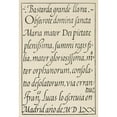 Bastarda grande llana.
Obsecro te domina sancta
Maria mater Dei pietate
plenissima, summi regis fi-
lia, mater gloriosissima, ma-
ter orphanorum, conso-
latio desolatorum, via
Fran. Lucas lo escrevia en
Madrid año de M D LXX